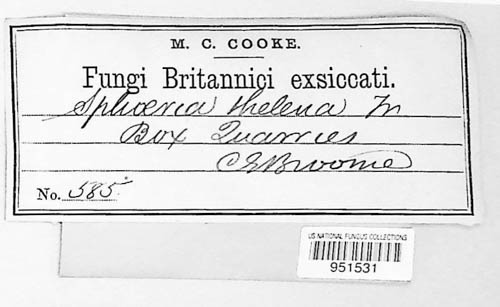 M. C. COOKE.
Fungi Britannici exsiccati.
Sphæria thelena Fr
Box Quarries
C E Broome
No. 585.
US NATIONAL FUNGUS COLLECTIONS
951531